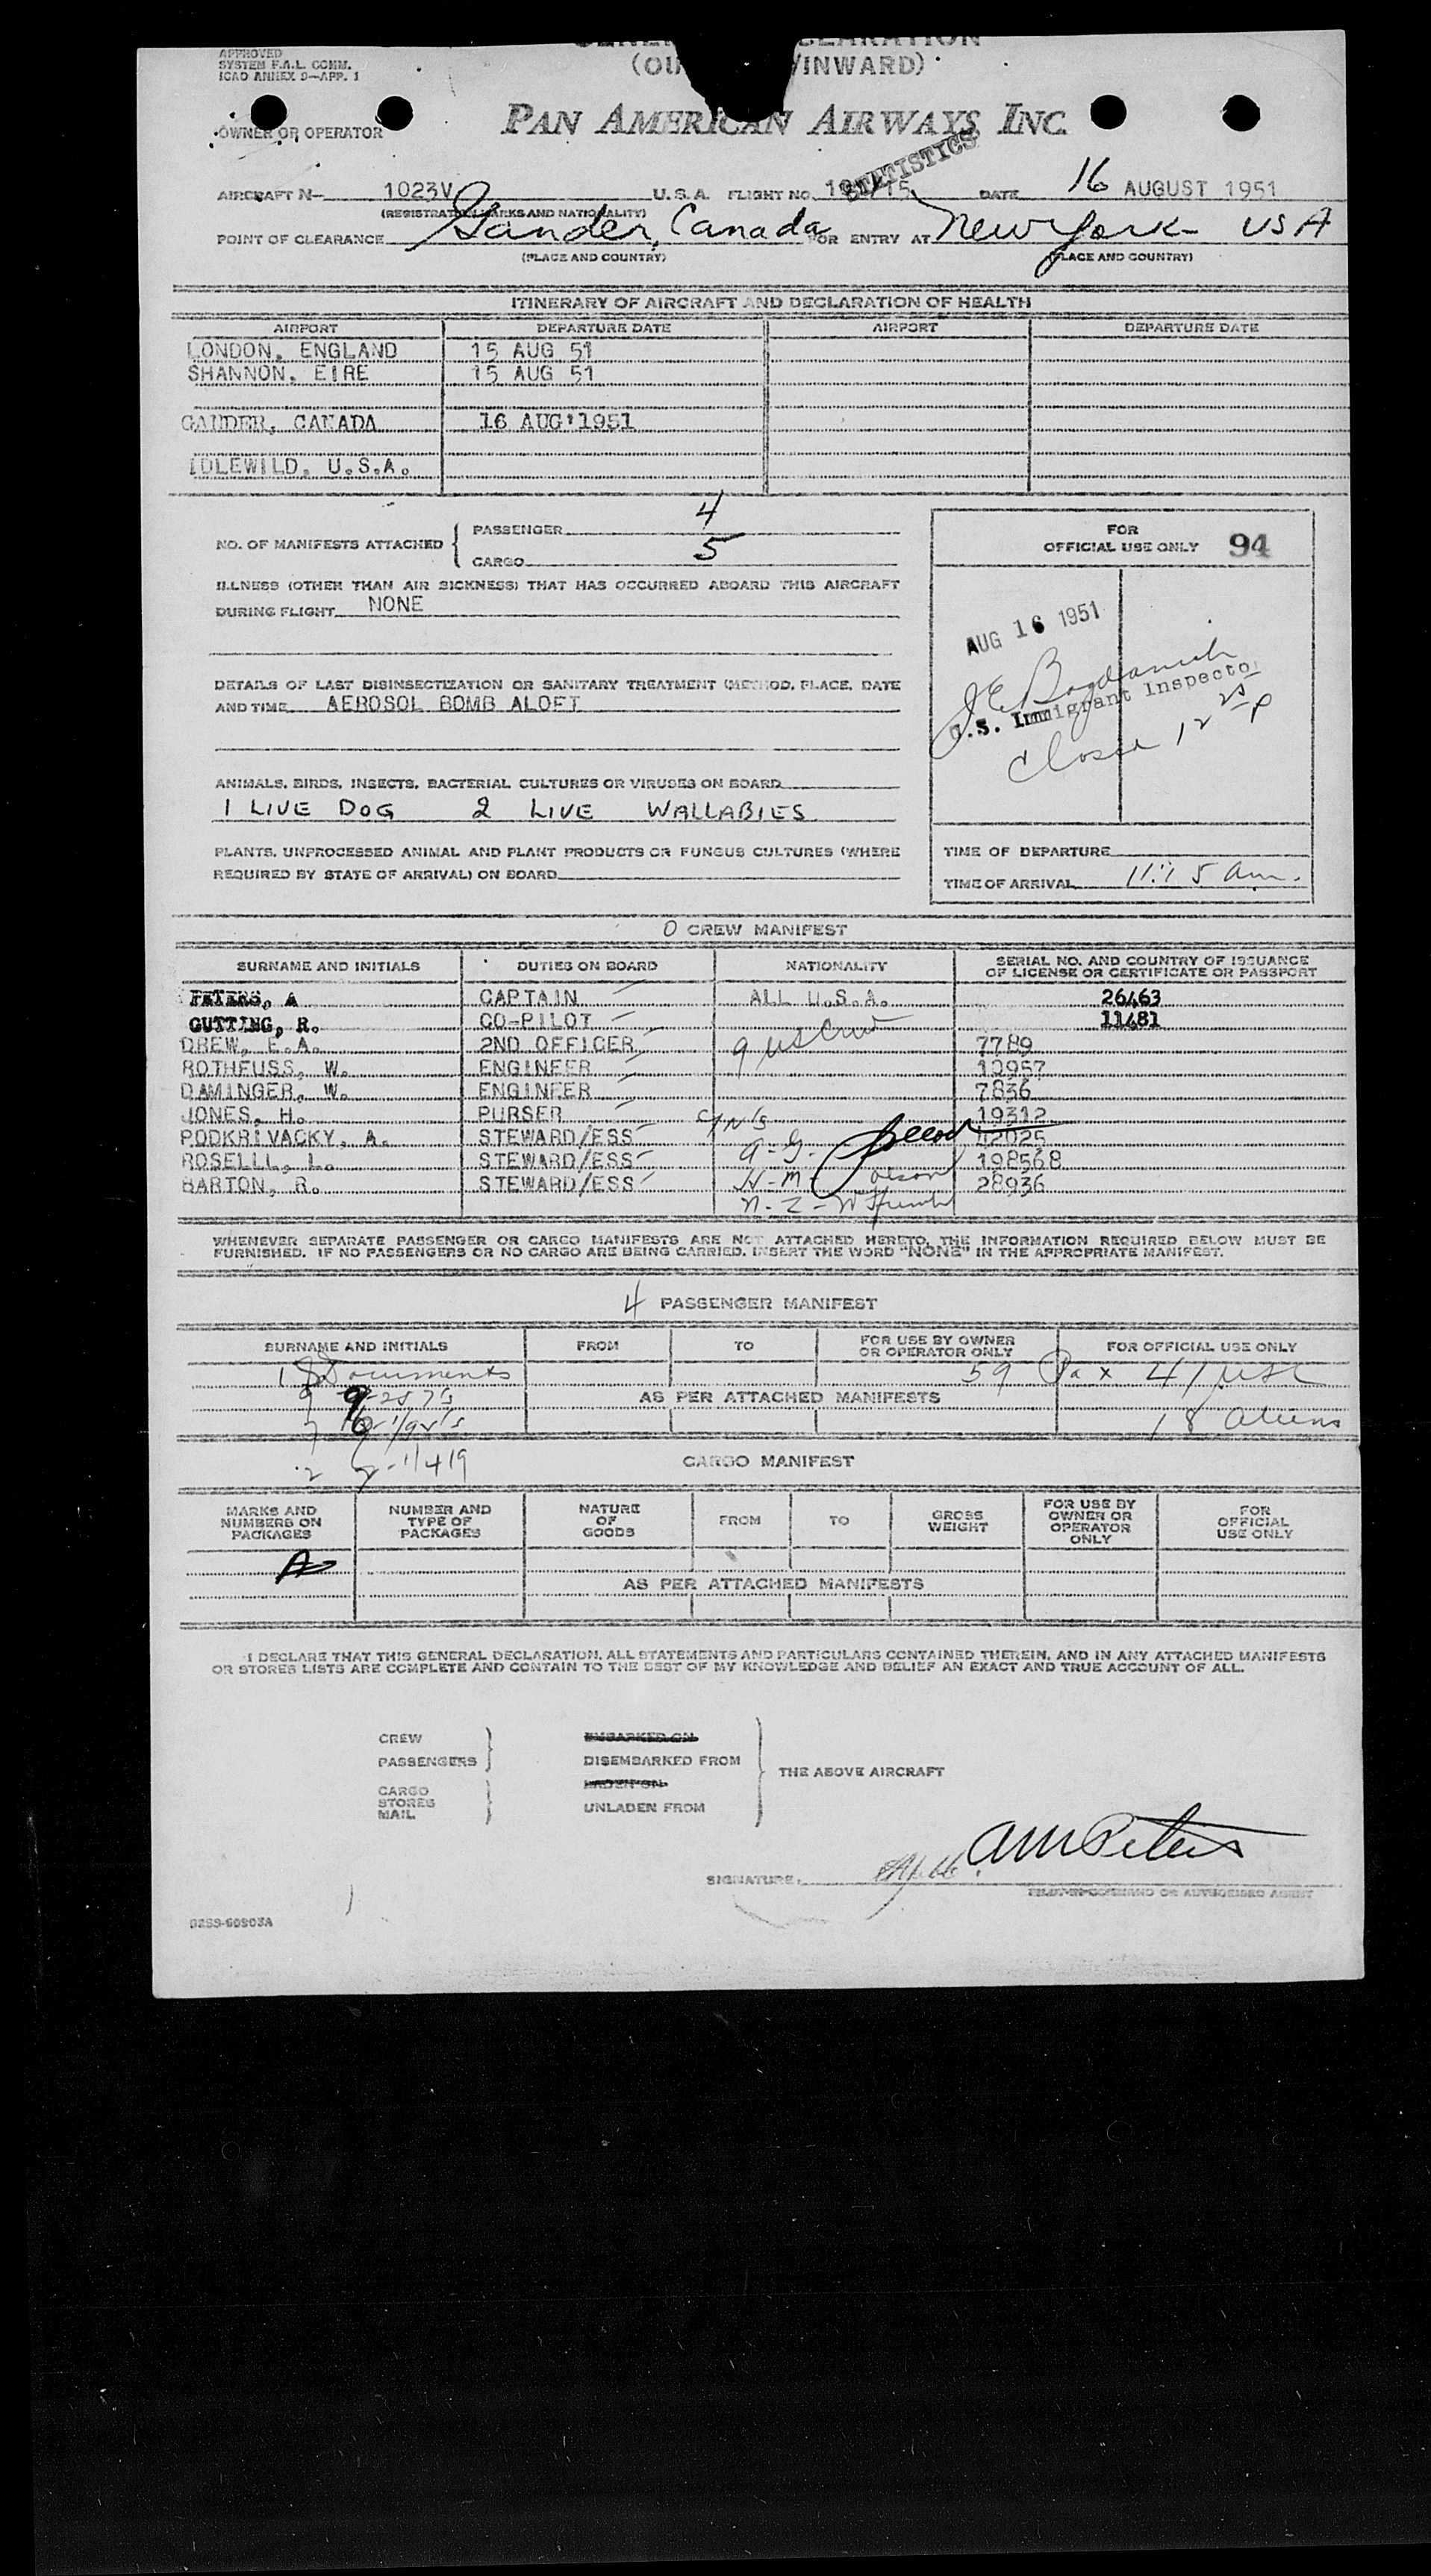 APPROVED
SYSTEM F.A.L. COMM.
ICAO ANNEX 9—APP. 1
(OU /INWARD)
OWNER OR OPERATOR
PAN AMERICAN AIRWAYS, INC.
STATISTICS
AIRCRAFT N— 1023V U.S.A. FLIGHT NO. DATE 16 AUGUST 1951
(REGISTRATION MARKS AND NATIONALITY)
POINT OF CLEARANCE Gander, Canada FOR ENTRY AT New York - USA
(PLACE AND COUNTRY) (PLACE AND COUNTRY)
ITINERARY OF AIRCRAFT AND DECLARATION OF HEALTH
AIRPORT DEPARTURE DATE AIRPORT DEPARTURE DATE
LONDON, ENGLAND 15 AUG 51
SHANNON, EIRE 15 AUG 51
GANDER, CANADA 16 AUG 1951
IDLEWILD, U.S.A.
NO. OF MANIFESTS ATTACHED { PASSENGER 4
CARGO 5
ILLNESS (OTHER THAN AIR SICKNESS) THAT HAS OCCURRED ABOARD THIS AIRCRAFT
DURING FLIGHT NONE
DETAILS OF LAST DISINSECTIZATION OR SANITARY TREATMENT (METHOD, PLACE, DATE
AND TIME AEROSOL BOMB ALOFT
ANIMALS, BIRDS, INSECTS, BACTERIAL CULTURES OR VIRUSES ON BOARD
1 LIVE DOG 2 LIVE WALLABIES
PLANTS, UNPROCESSED ANIMAL AND PLANT PRODUCTS OR FUNGUS CULTURES (WHERE
REQUIRED BY STATE OF ARRIVAL) ON BOARD
FOR
OFFICIAL USE ONLY 94
AUG 16 1951
U.S. Immigrant Inspector
TIME OF DEPARTURE
TIME OF ARRIVAL 11:15 am.
0 CREW MANIFEST
SURNAME AND INITIALS DUTIES ON BOARD NATIONALITY SERIAL NO. AND COUNTRY OF ISSUANCE
OF LICENSE OR CERTIFICATE OR PASSPORT
PETERS, A CAPTAIN ALL U.S.A. 26463
GUTTING, R. CO-PILOT 11481
DREW, E.A. 2ND OFFICER 9 US Crew 7789
ROTHFUSS, W. ENGINEER 10957
DAMINGER, W. ENGINEER 7836
JONES, H. PURSER 19312
PODKRIVACKY, A. STEWARD/ESS 42025
ROSELLI, L. STEWARD/ESS 198568
BARTON, R. STEWARD/ESS 28936
WHENEVER SEPARATE PASSENGER OR CARGO MANIFESTS ARE NOT ATTACHED HERETO, THE INFORMATION REQUIRED BELOW MUST BE
FURNISHED. IF NO PASSENGERS OR NO CARGO ARE BEING CARRIED, INSERT THE WORD "NONE" IN THE APPROPRIATE MANIFEST.
4 PASSENGER MANIFEST
SURNAME AND INITIALS FROM TO FOR USE BY OWNER
OR OPERATOR ONLY FOR OFFICIAL USE ONLY
Documents 59 Pax 41 USC
AS PER ATTACHED MANIFESTS
18 Aliens
CARGO MANIFEST
MARKS AND
NUMBERS ON
PACKAGES NUMBER AND
TYPE OF
PACKAGES NATURE
OF
GOODS FROM TO GROSS
WEIGHT FOR USE BY
OWNER OR
OPERATOR
ONLY FOR
OFFICIAL
USE ONLY
AS PER ATTACHED MANIFESTS
I DECLARE THAT THIS GENERAL DECLARATION, ALL STATEMENTS AND PARTICULARS CONTAINED THEREIN, AND IN ANY ATTACHED MANIFESTS
OR STORES LISTS ARE COMPLETE AND CONTAIN TO THE BEST OF MY KNOWLEDGE AND BELIEF AN EXACT AND TRUE ACCOUNT OF ALL.
CREW EMBARKED ON
PASSENGERS DISEMBARKED FROM
THE ABOVE AIRCRAFT
CARGO LADEN ON
STORES
MAIL UNLADEN FROM
SIGNATURE AM Peters
PILOT-IN-COMMAND OR AUTHORISED AGENT